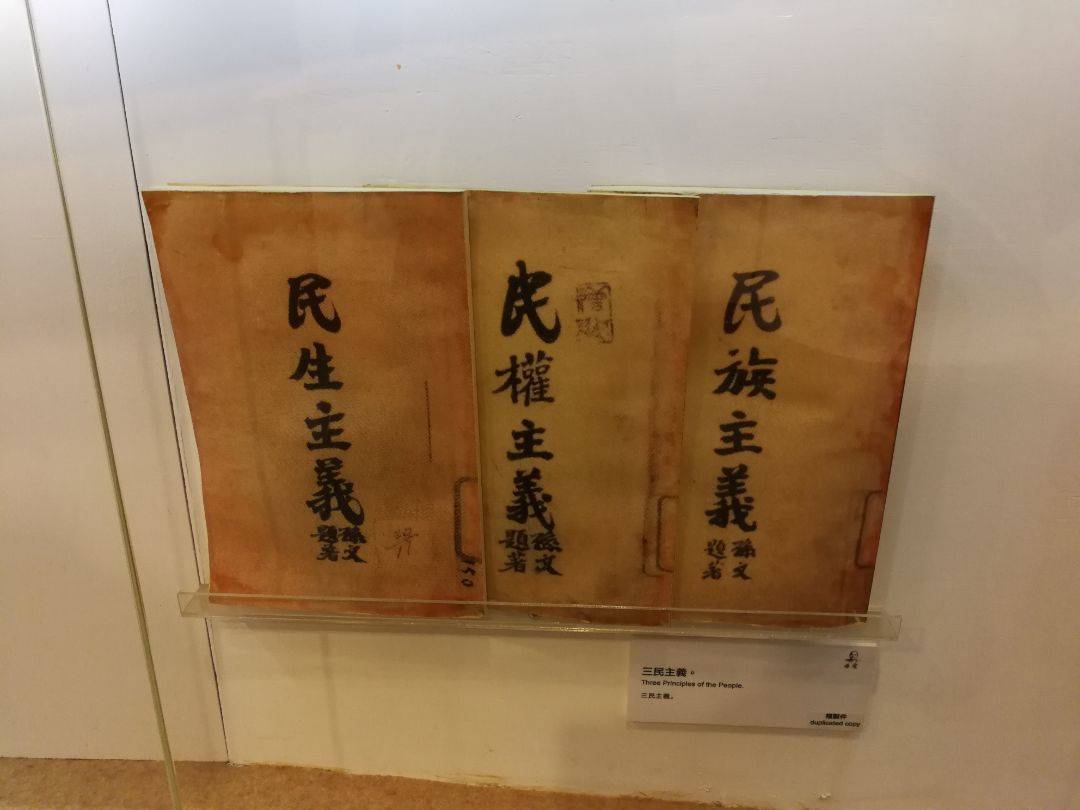 民族主義
孫文
題著
民權主義
孫文
題著
民生主義
孫文
題著
150
三民主義。
Three Principles of the People.
三民主義。
複製件
duplicated copy